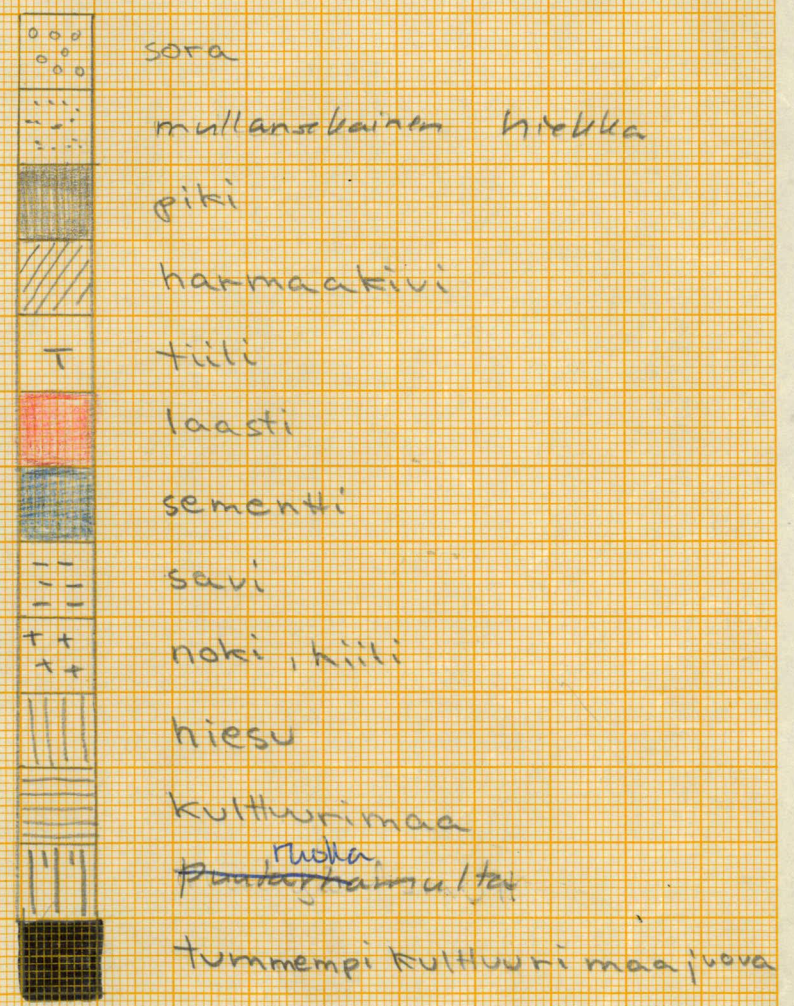 sora
mullansekainen hiekka
piki
harmaakivi
T tiili
laasti
sementti
savi
noki, hiili
hiesu
kulttuurimaa
ruoka
puutarhamulta
tummempi kulttuurimaajuova